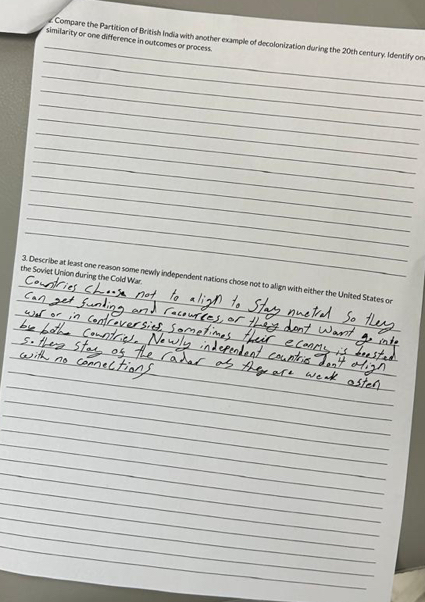 2. Compare the Partition of British India with another example of decolonization during the 20th century. Identify one
similarity or one difference in outcomes or process.
3. Describe at least one reason some newly independent nations chose not to align with either the United States or
the Soviet Union during the Cold War.
Countries choose not to align to Stay nuetral So they
can get funding and racources, or they dont want go into
war or in controversies sometimes their econmy is boosted
by bothe countries. Newly independent countries don't align
so they stay of the radar as they are weak often
with no connections